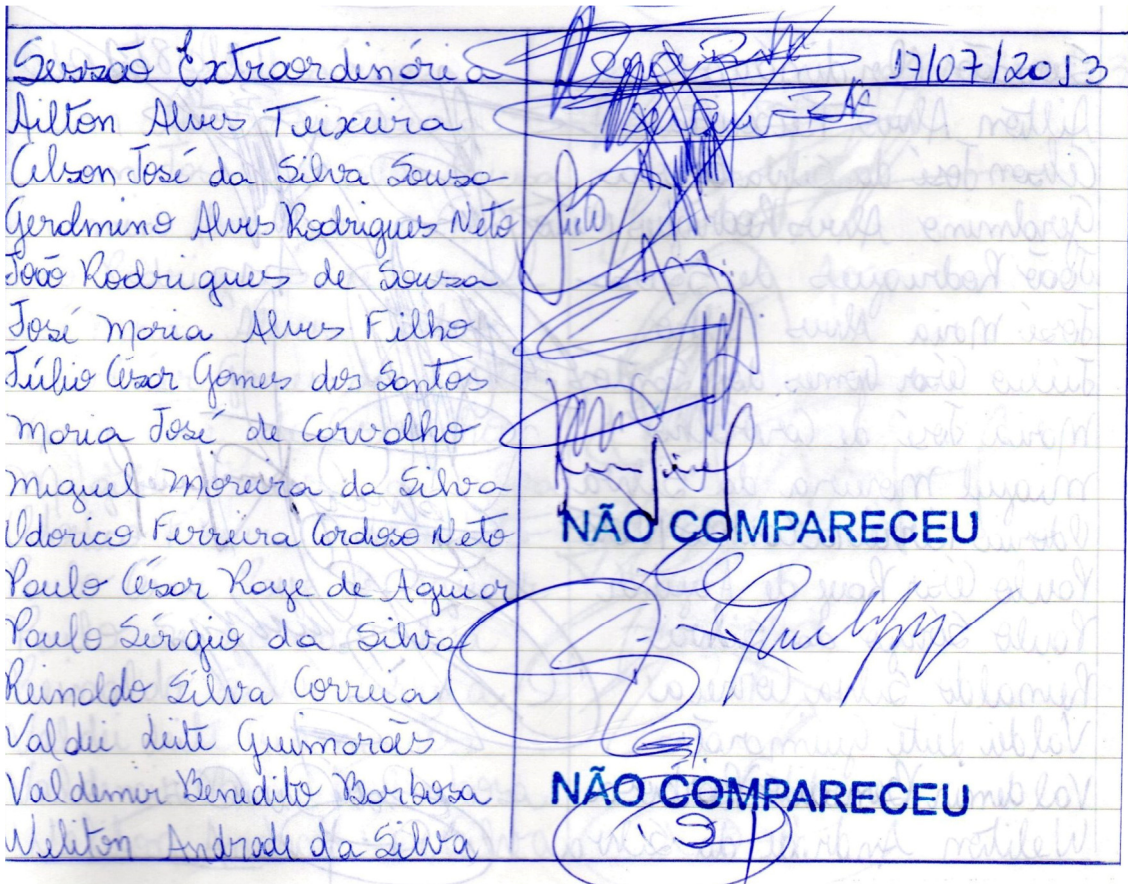 Sessão Extraordinária 17/07/2013
Ailton Alves Teixeira
Celson José da Silva Sousa
Gerolmino Alves Rodrigues Neto
João Rodrigues de Souza
José Maria Alves Filho
Júlio César Gomes dos Santos
Maria José de Carvalho
Miguel Moreira da Silva
Odorico Ferreira Cardoso Neto NÃO COMPARECEU
Paulo César Raye de Aguiar
Paulo Sérgio da Silva
Reinaldo Silva Correia
Valdei Leite Guimarães
Valdemir Benedito Barbosa NÃO COMPARECEU
Weliton Andrade da Silva